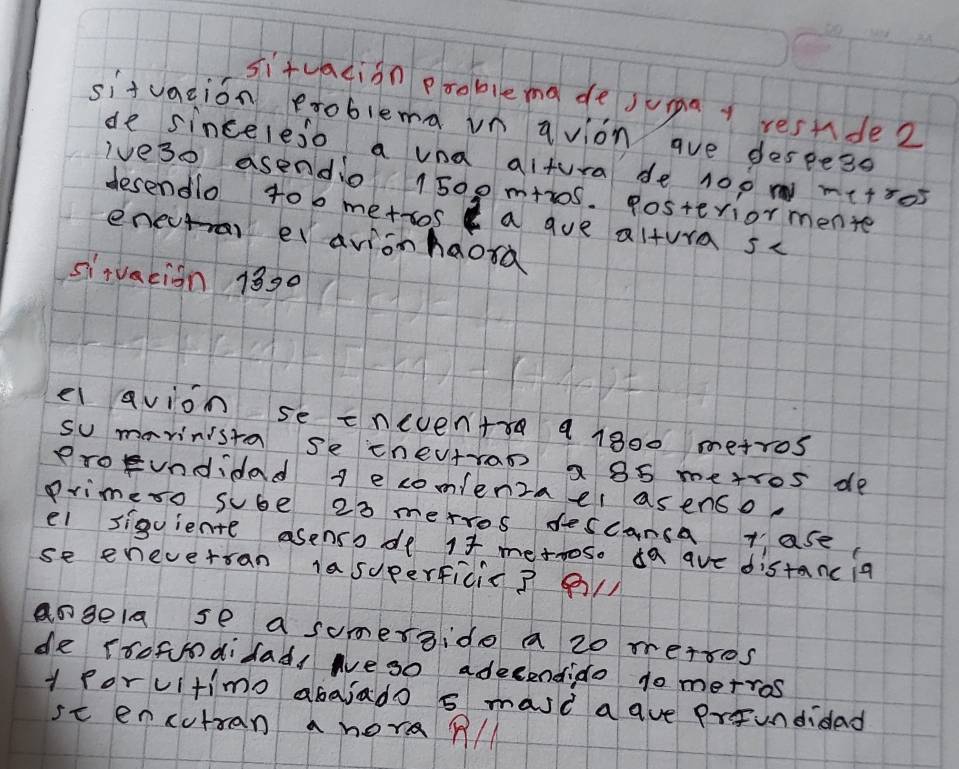 situación problema de suma y resta de 2
situación problema un avión que despego
de sincelejo a una altura de 100 metros
luego asendio 1500 mtros. posteriormente
desendio 700 metros a que altura se
enectrai el avión haora
situación 1300
el avión se encuentra a 1800 metros
su marinista se eneutran a 85 metros de
profundidad y e comienza el asenso.
primero sube 23 metros descansa y ase
el siguiente asenso de 17 metroso da que distancia
se enecuetran la superficie? R//
angela se a sumergido a 20 metros
de profundidad, luego adecendido 10 metros
y por ultimo abajado 5 mas a que profundidad
se encutran ahora R//